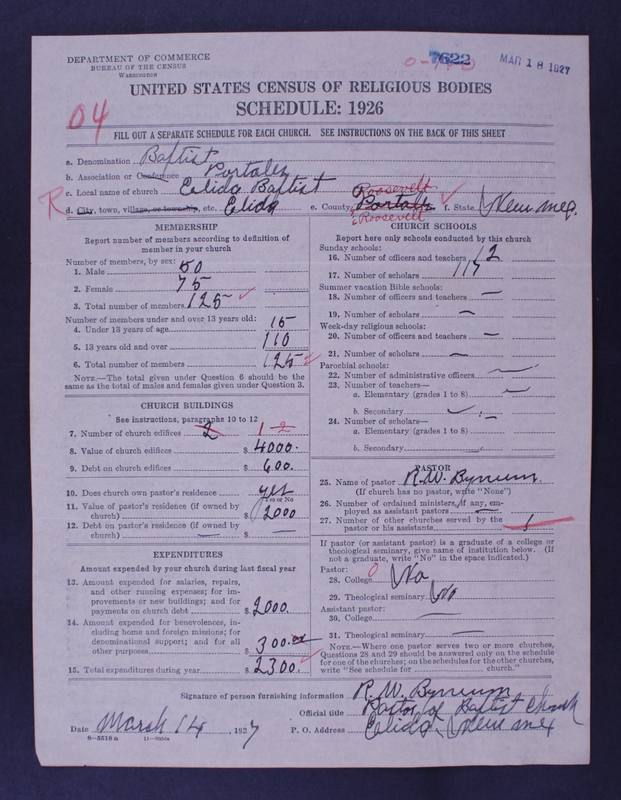 DEPARTMENT OF COMMERCE
BUREAU OF THE CENSUS
WASHINGTON
7622
MAR 18 1927
UNITED STATES CENSUS OF RELIGIOUS BODIES
SCHEDULE: 1926
04
FILL OUT A SEPARATE SCHEDULE FOR EACH CHURCH. SEE INSTRUCTIONS ON THE BACK OF THIS SHEET
a. Denomination Baptist
b. Association or Conference Portales
c. Local name of church Elida Baptist
R d. City, town, village, or township, etc. Elida e. County Roosevelt Portales Roosevelt f. State New Mex.
MEMBERSHIP
Report number of members according to definition of
member in your church
Number of members, by sex:
1. Male 50
2. Female 75
3. Total number of members 125
Number of members under and over 13 years old:
4. Under 13 years of age 15
5. 13 years old and over 110
6. Total number of members 125
NOTE.—The total given under Question 6 should be the
same as the total of males and females given under Question 3.
CHURCH BUILDINGS
See instructions, paragraphs 10 to 12
7. Number of church edifices 2 1-2
8. Value of church edifices $ 4000.
9. Debt on church edifices $ 600.
10. Does church own pastor's residence yes
Yes or No
11. Value of pastor's residence (if owned by
church) $ 2000
12. Debt on pastor's residence (if owned by
church) — $ —
EXPENDITURES
Amount expended by your church during last fiscal year
13. Amount expended for salaries, repairs,
and other running expenses; for im-
provements or new buildings; and for
payments on church debt $ 2000.
14. Amount expended for benevolences, in-
cluding home and foreign missions; for
denominational support; and for all
other purposes $ 300.00
15. Total expenditures during year $ 2300.
CHURCH SCHOOLS
Report here only schools conducted by this church
Sunday schools:
16. Number of officers and teachers 12
17. Number of scholars 117
Summer vacation Bible schools:
18. Number of officers and teachers —
19. Number of scholars —
Week-day religious schools:
20. Number of officers and teachers —
21. Number of scholars —
Parochial schools:
22. Number of administrative officers —
23. Number of teachers—
a. Elementary (grades 1 to 8) —
b. Secondary —
24. Number of scholars—
a. Elementary (grades 1 to 8)
b. Secondary
PASTOR
25. Name of pastor R. W. Bynum.
(If church has no pastor, write "None")
26. Number of ordained ministers, if any, em-
ployed as assistant pastors —
27. Number of other churches served by the
pastor or his assistants 1
If pastor (or assistant pastor) is a graduate of a college or
theological seminary, give name of institution below. (If
not a graduate, write "No" in the space indicated.)
Pastor: 0
28. College No
29. Theological seminary No
Assistant pastor:
30. College —
31. Theological seminary —
NOTE.—Where one pastor serves two or more churches,
Questions 28 and 29 should be answered only on the schedule
for one of the churches; on the schedules for the other churches,
write "See schedule for church."
Signature of person furnishing information R. W. Bynum
Official title Pastor of Baptist Church
Date March 14, 1927 P. O. Address Elida, New Mex
8—5518a